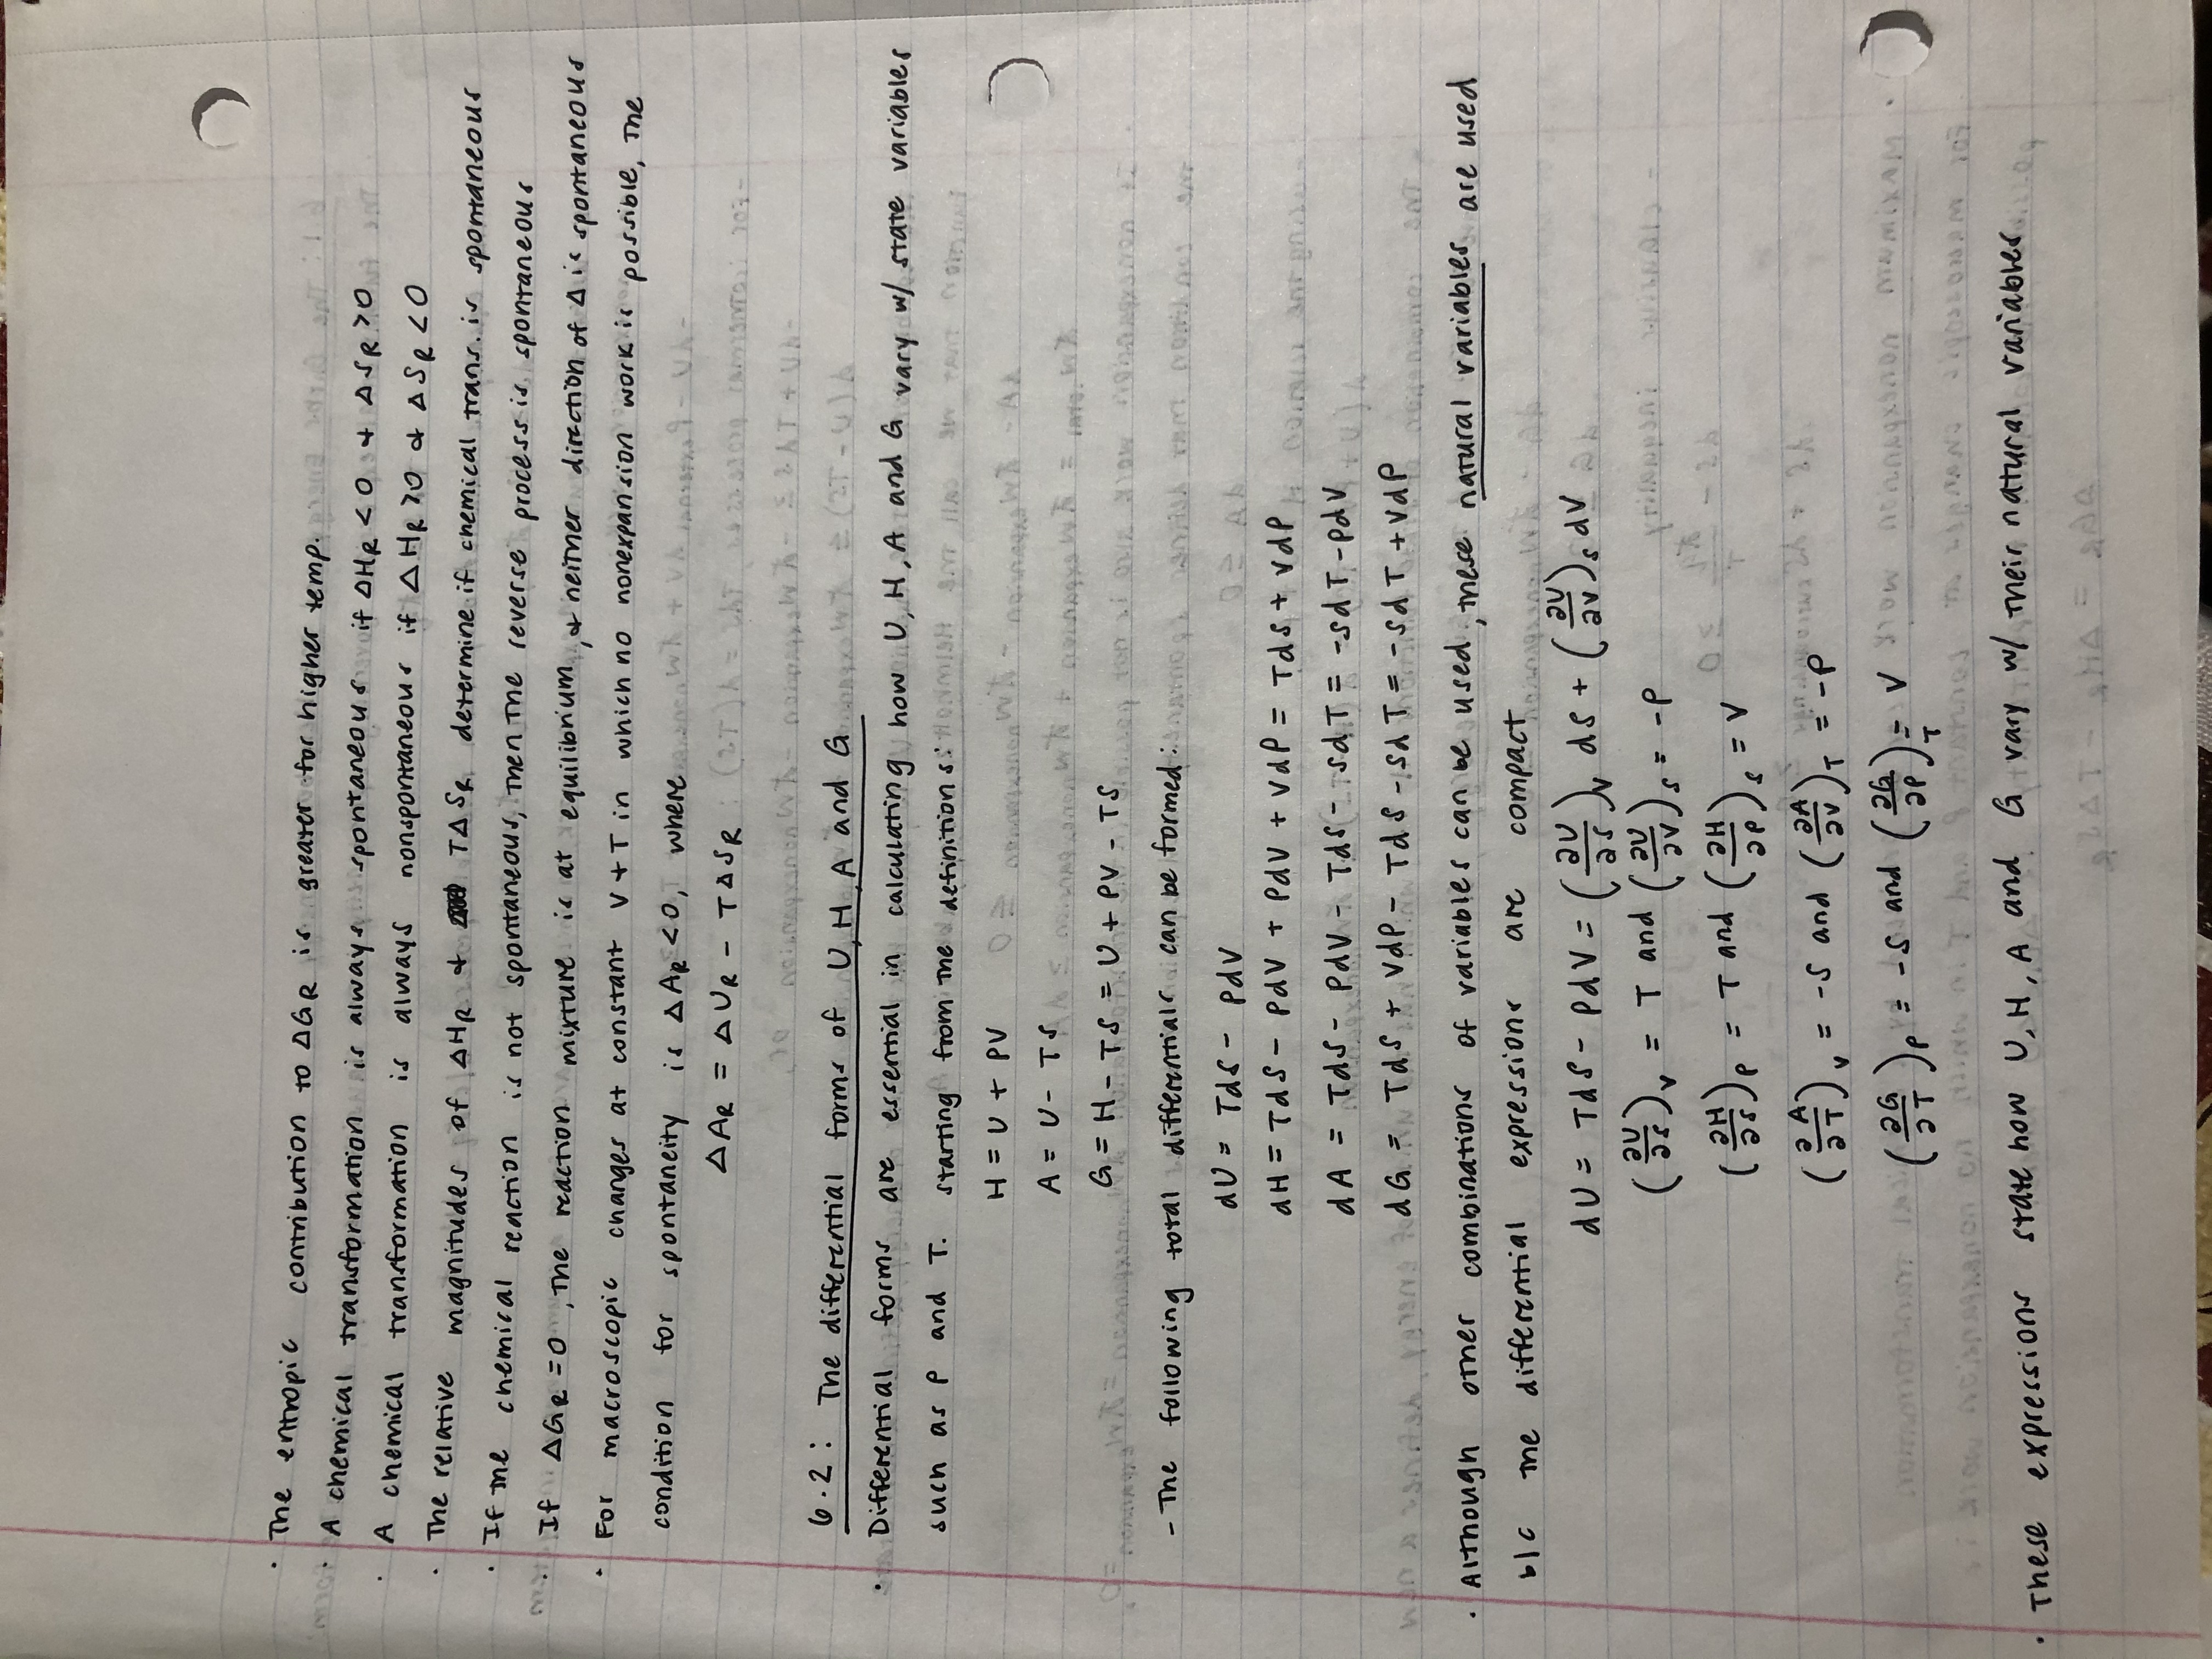 · The entropic contribution to ΔG_R is greater for higher temp.
· A chemical transformation is always spontaneous if ΔH_R < 0 & ΔS_R > 0
· A chemical transformation is always nonspontaneous if ΔH_R > 0 & ΔS_R < 0
· The relative magnitudes of ΔH_R & TΔS_R determine if chemical trans. is spontaneous
· If the chemical reaction is not spontaneous, then the reverse process is spontaneous
· If ΔG_R = 0, the reaction mixture is at equilibrium, & neither direction of Δ is spontaneous
· For macroscopic changes at constant V + T in which no nonexpansion work is possible, the
condition for spontaneity is ΔA_R < 0, where
ΔA_R = ΔU_R - TΔS_R
6.2: The differential forms of U, H, A and G
· Differential forms are essential in calculating how U, H, A and G vary w/ state variables
such as P and T. starting from the definitions:
H = U + PV
A = U - TS
G = H - TS = U + PV - TS
- The following total differentials can be formed:
dU = TdS - PdV
dH = TdS - PdV + PdV + VdP = TdS + VdP
dA = TdS - PdV - TdS - SdT = -SdT - PdV
dG = TdS + VdP - TdS - SdT = -SdT + VdP
· Although other combinations of variables can be used, these natural variables are used
b/c the differential expressions are compact
dU = TdS - PdV = (∂U/∂S)_V dS + (∂U/∂V)_S dV
(∂U/∂S)_V = T and (∂U/∂V)_S = -P
(∂H/∂S)_P = T and (∂H/∂P)_S = V
(∂A/∂T)_V = -S and (∂A/∂V)_T = -P
(∂G/∂T)_P = -S and (∂G/∂P)_T = V
· These expressions state how U, H, A and G vary w/ their natural variables